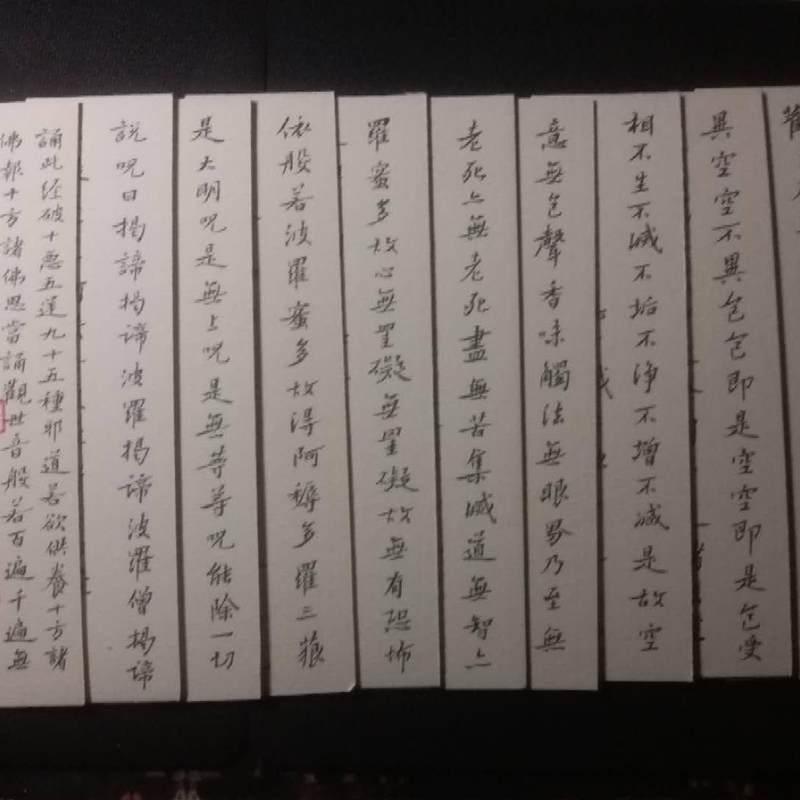 異空空不異色色即是空空即是色受
相不生不滅不垢不淨不增不減是故空
意無色聲香味觸法無眼界乃至無
老死亦無老死盡無苦集滅道無智亦
羅蜜多故心無罣礙無罣礙故無有恐怖
依般若波羅蜜多故得阿耨多羅三藐
是大明呪是無上呪是無等等呪能除一切
說呪曰揭諦揭諦波羅揭諦波羅僧揭諦
誦此經破十惡五逆九十五種邪道若欲供養十方諸
佛報十方諸佛恩當誦觀世音般若百遍千遍無